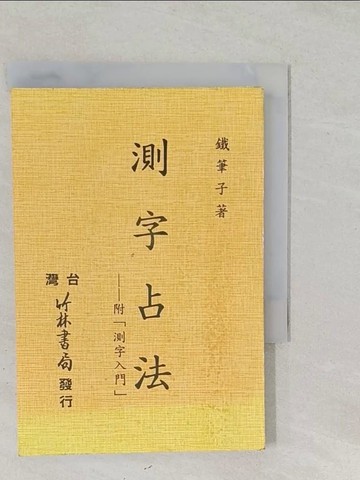 鐵筆子著
測字占法
——附「測字入門」
台灣竹林書局發行